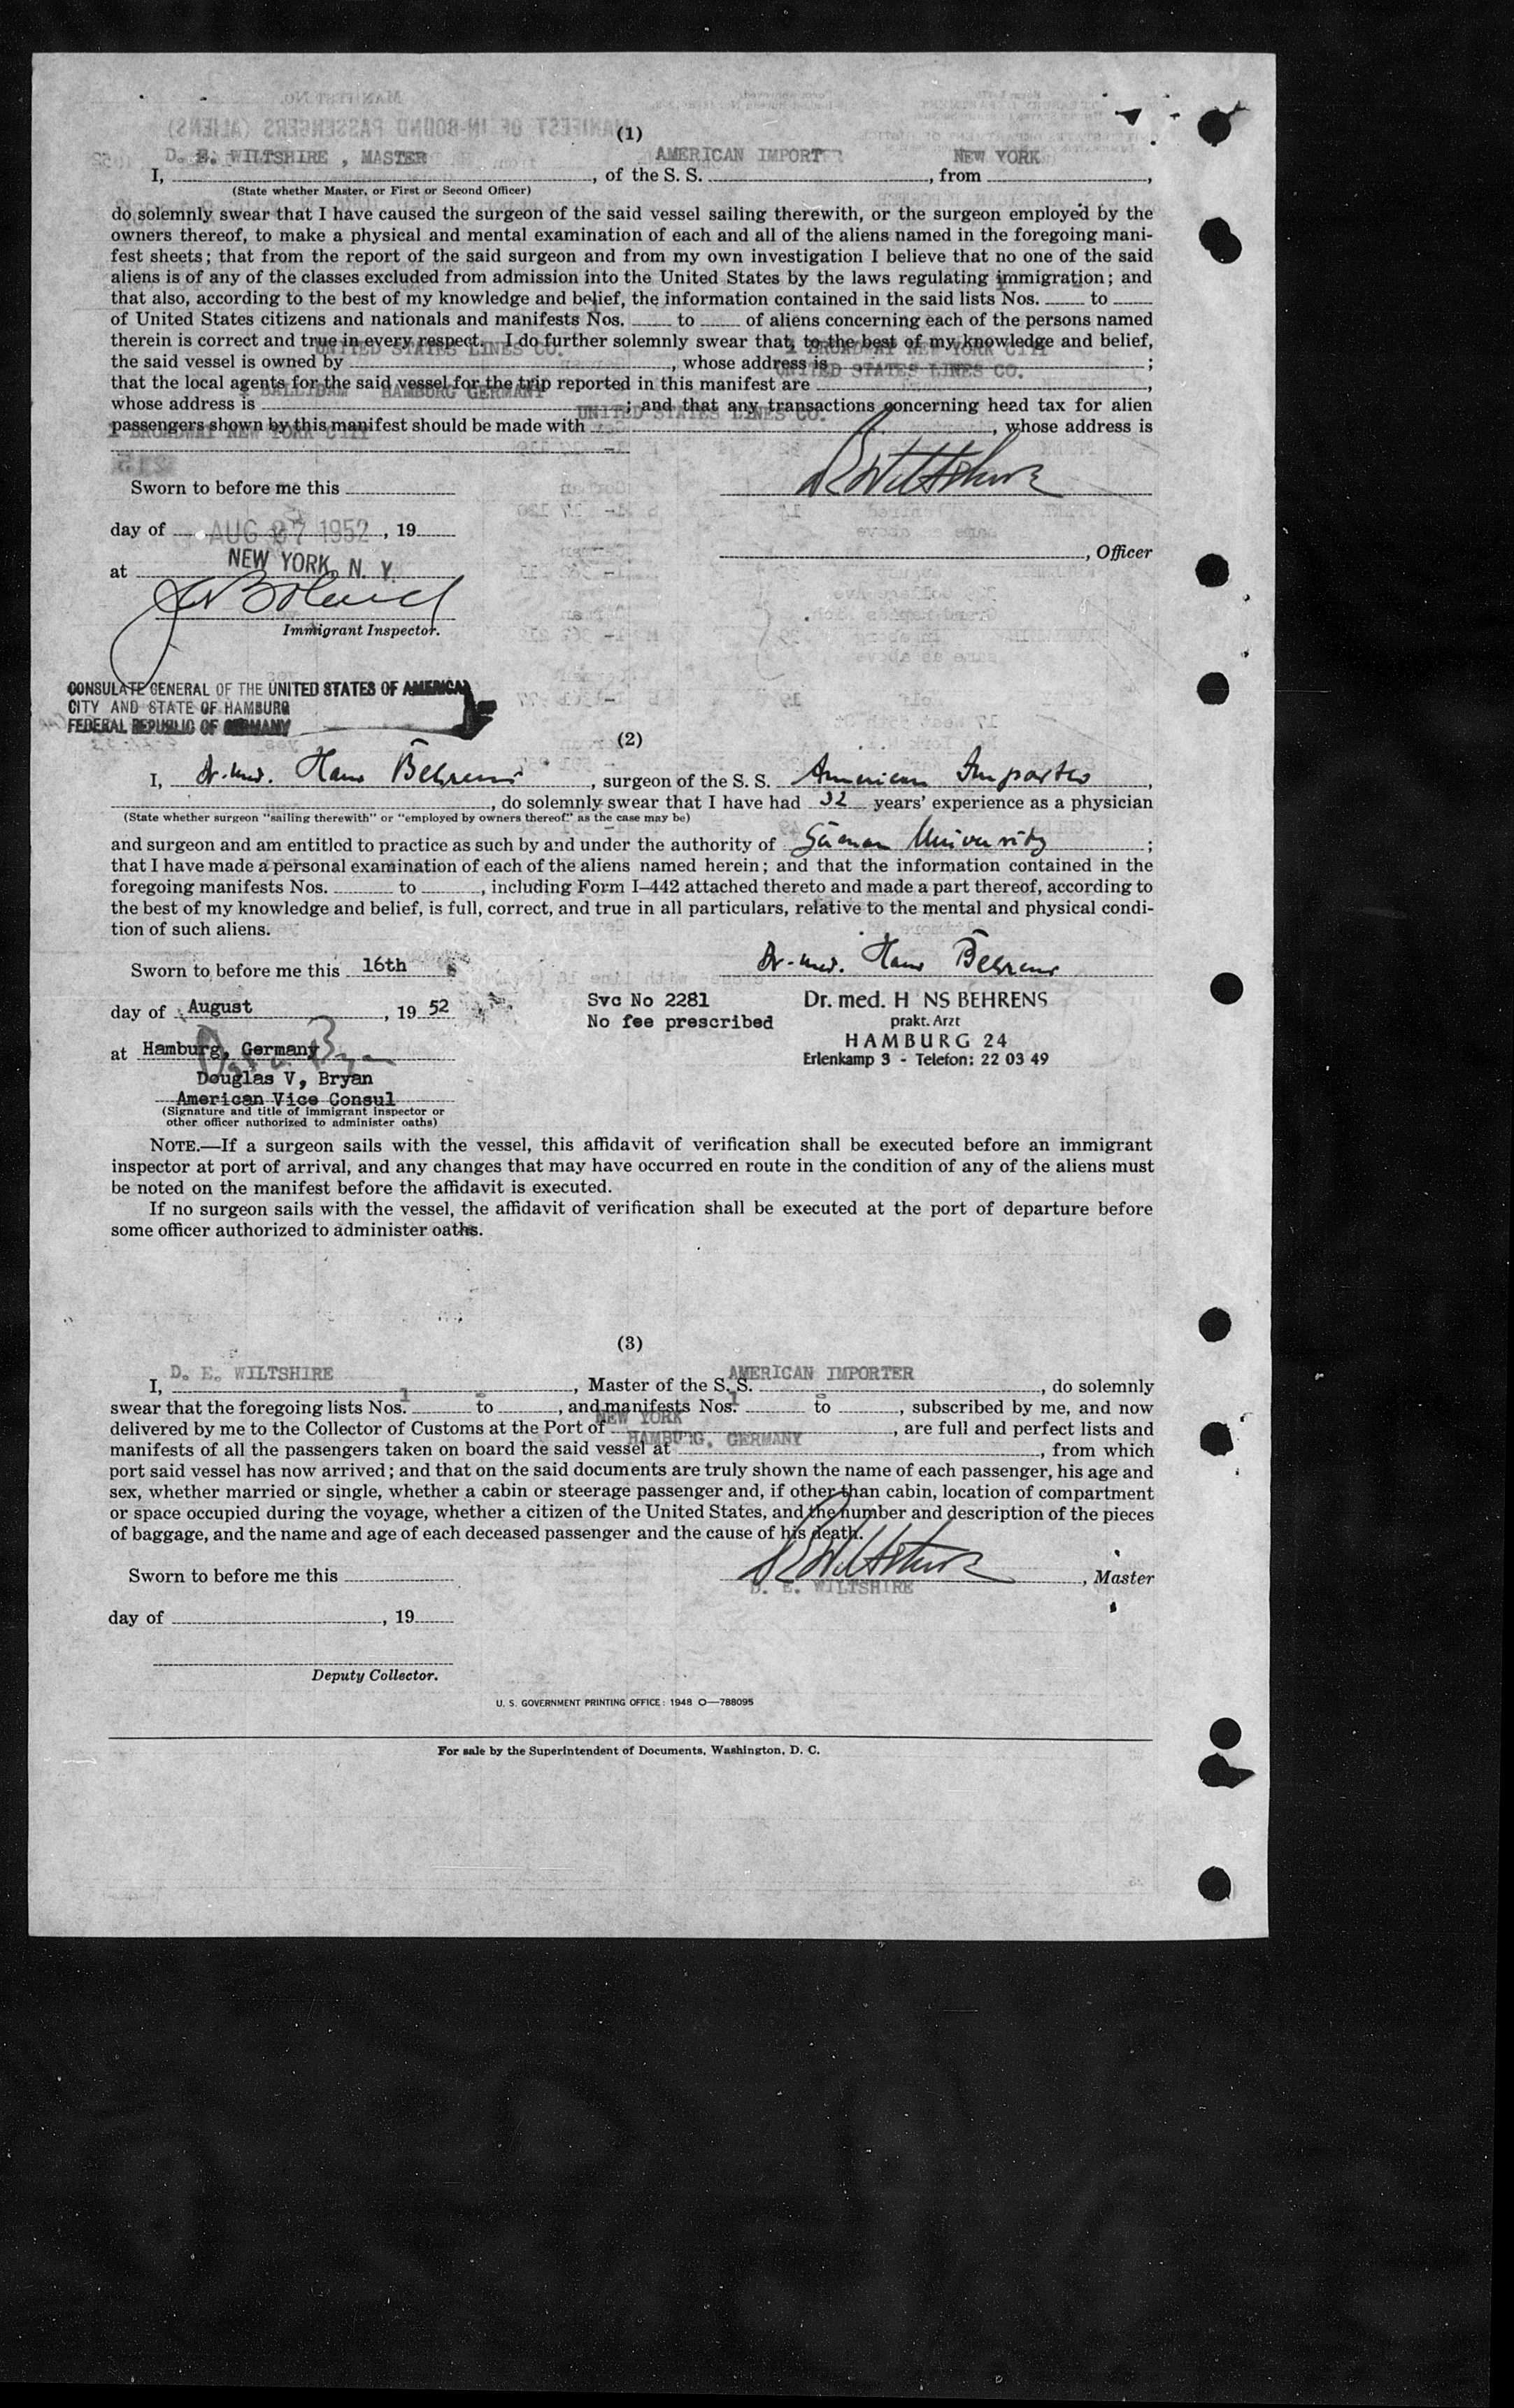 (1)
D. E. WILTSHIRE , MASTER AMERICAN IMPORT NEW YORK
I, , of the S. S. , from ,
(State whether Master, or First or Second Officer)
do solemnly swear that I have caused the surgeon of the said vessel sailing therewith, or the surgeon employed by the
owners thereof, to make a physical and mental examination of each and all of the aliens named in the foregoing mani-
fest sheets; that from the report of the said surgeon and from my own investigation I believe that no one of the said
aliens is of any of the classes excluded from admission into the United States by the laws regulating immigration; and
that also, according to the best of my knowledge and belief, the information contained in the said lists Nos. to
of United States citizens and nationals and manifests Nos. to of aliens concerning each of the persons named
therein is correct and true in every respect. I do further solemnly swear that, to the best of my knowledge and belief,
UNITED STATES LINES CO. 1 BROADWAY NEW YORK CITY
the said vessel is owned by , whose address is ;
UNITED STATES LINES CO.
that the local agents for the said vessel for the trip reported in this manifest are ,
BALLIDAM HAMBURG GERMANY
whose address is ; and that any transactions concerning head tax for alien
UNITED STATES LINES CO.
passengers shown by this manifest should be made with , whose address is
1 BROADWAY NEW YORK CITY
Sworn to before me this
day of AUG 27 1952 , 19
, Officer
at NEW YORK, N. Y.
Immigrant Inspector.
CONSULATE GENERAL OF THE UNITED STATES OF AMERICA
CITY AND STATE OF HAMBURG
FEDERAL REPUBLIC OF GERMANY
(2)
I, Dr. med. Hans Behrens , surgeon of the S. S. American Importer ,
, do solemnly swear that I have had 32 years' experience as a physician
(State whether surgeon "sailing therewith" or "employed by owners thereof" as the case may be)
and surgeon and am entitled to practice as such by and under the authority of German University ;
that I have made a personal examination of each of the aliens named herein; and that the information contained in the
foregoing manifests Nos. to , including Form I–442 attached thereto and made a part thereof, according to
the best of my knowledge and belief, is full, correct, and true in all particulars, relative to the mental and physical condi-
tion of such aliens.
Sworn to before me this 16th Dr. med. Hans Behrens
day of August , 19 52 Svc No 2281 Dr. med. H NS BEHRENS
No fee prescribed prakt. Arzt
at Hamburg, Germany HAMBURG 24
Erlenkamp 3 - Telefon: 22 03 49
Douglas V, Bryan
American Vice Consul
(Signature and title of immigrant inspector or
other officer authorized to administer oaths)
NOTE.—If a surgeon sails with the vessel, this affidavit of verification shall be executed before an immigrant
inspector at port of arrival, and any changes that may have occurred en route in the condition of any of the aliens must
be noted on the manifest before the affidavit is executed.
If no surgeon sails with the vessel, the affidavit of verification shall be executed at the port of departure before
some officer authorized to administer oaths.
(3)
D. E. WILTSHIRE AMERICAN IMPORTER
I, , Master of the S. S. , do solemnly
swear that the foregoing lists Nos. 1 to , and manifests Nos. 1 to , subscribed by me, and now
NEW YORK
delivered by me to the Collector of Customs at the Port of , are full and perfect lists and
HAMBURG, GERMANY
manifests of all the passengers taken on board the said vessel at , from which
port said vessel has now arrived; and that on the said documents are truly shown the name of each passenger, his age and
sex, whether married or single, whether a cabin or steerage passenger and, if other than cabin, location of compartment
or space occupied during the voyage, whether a citizen of the United States, and the number and description of the pieces
of baggage, and the name and age of each deceased passenger and the cause of his death.
Sworn to before me this , Master
D. E. WILTSHIRE
day of , 19
Deputy Collector.
U. S. GOVERNMENT PRINTING OFFICE : 1948 O—788095
For sale by the Superintendent of Documents, Washington, D. C.